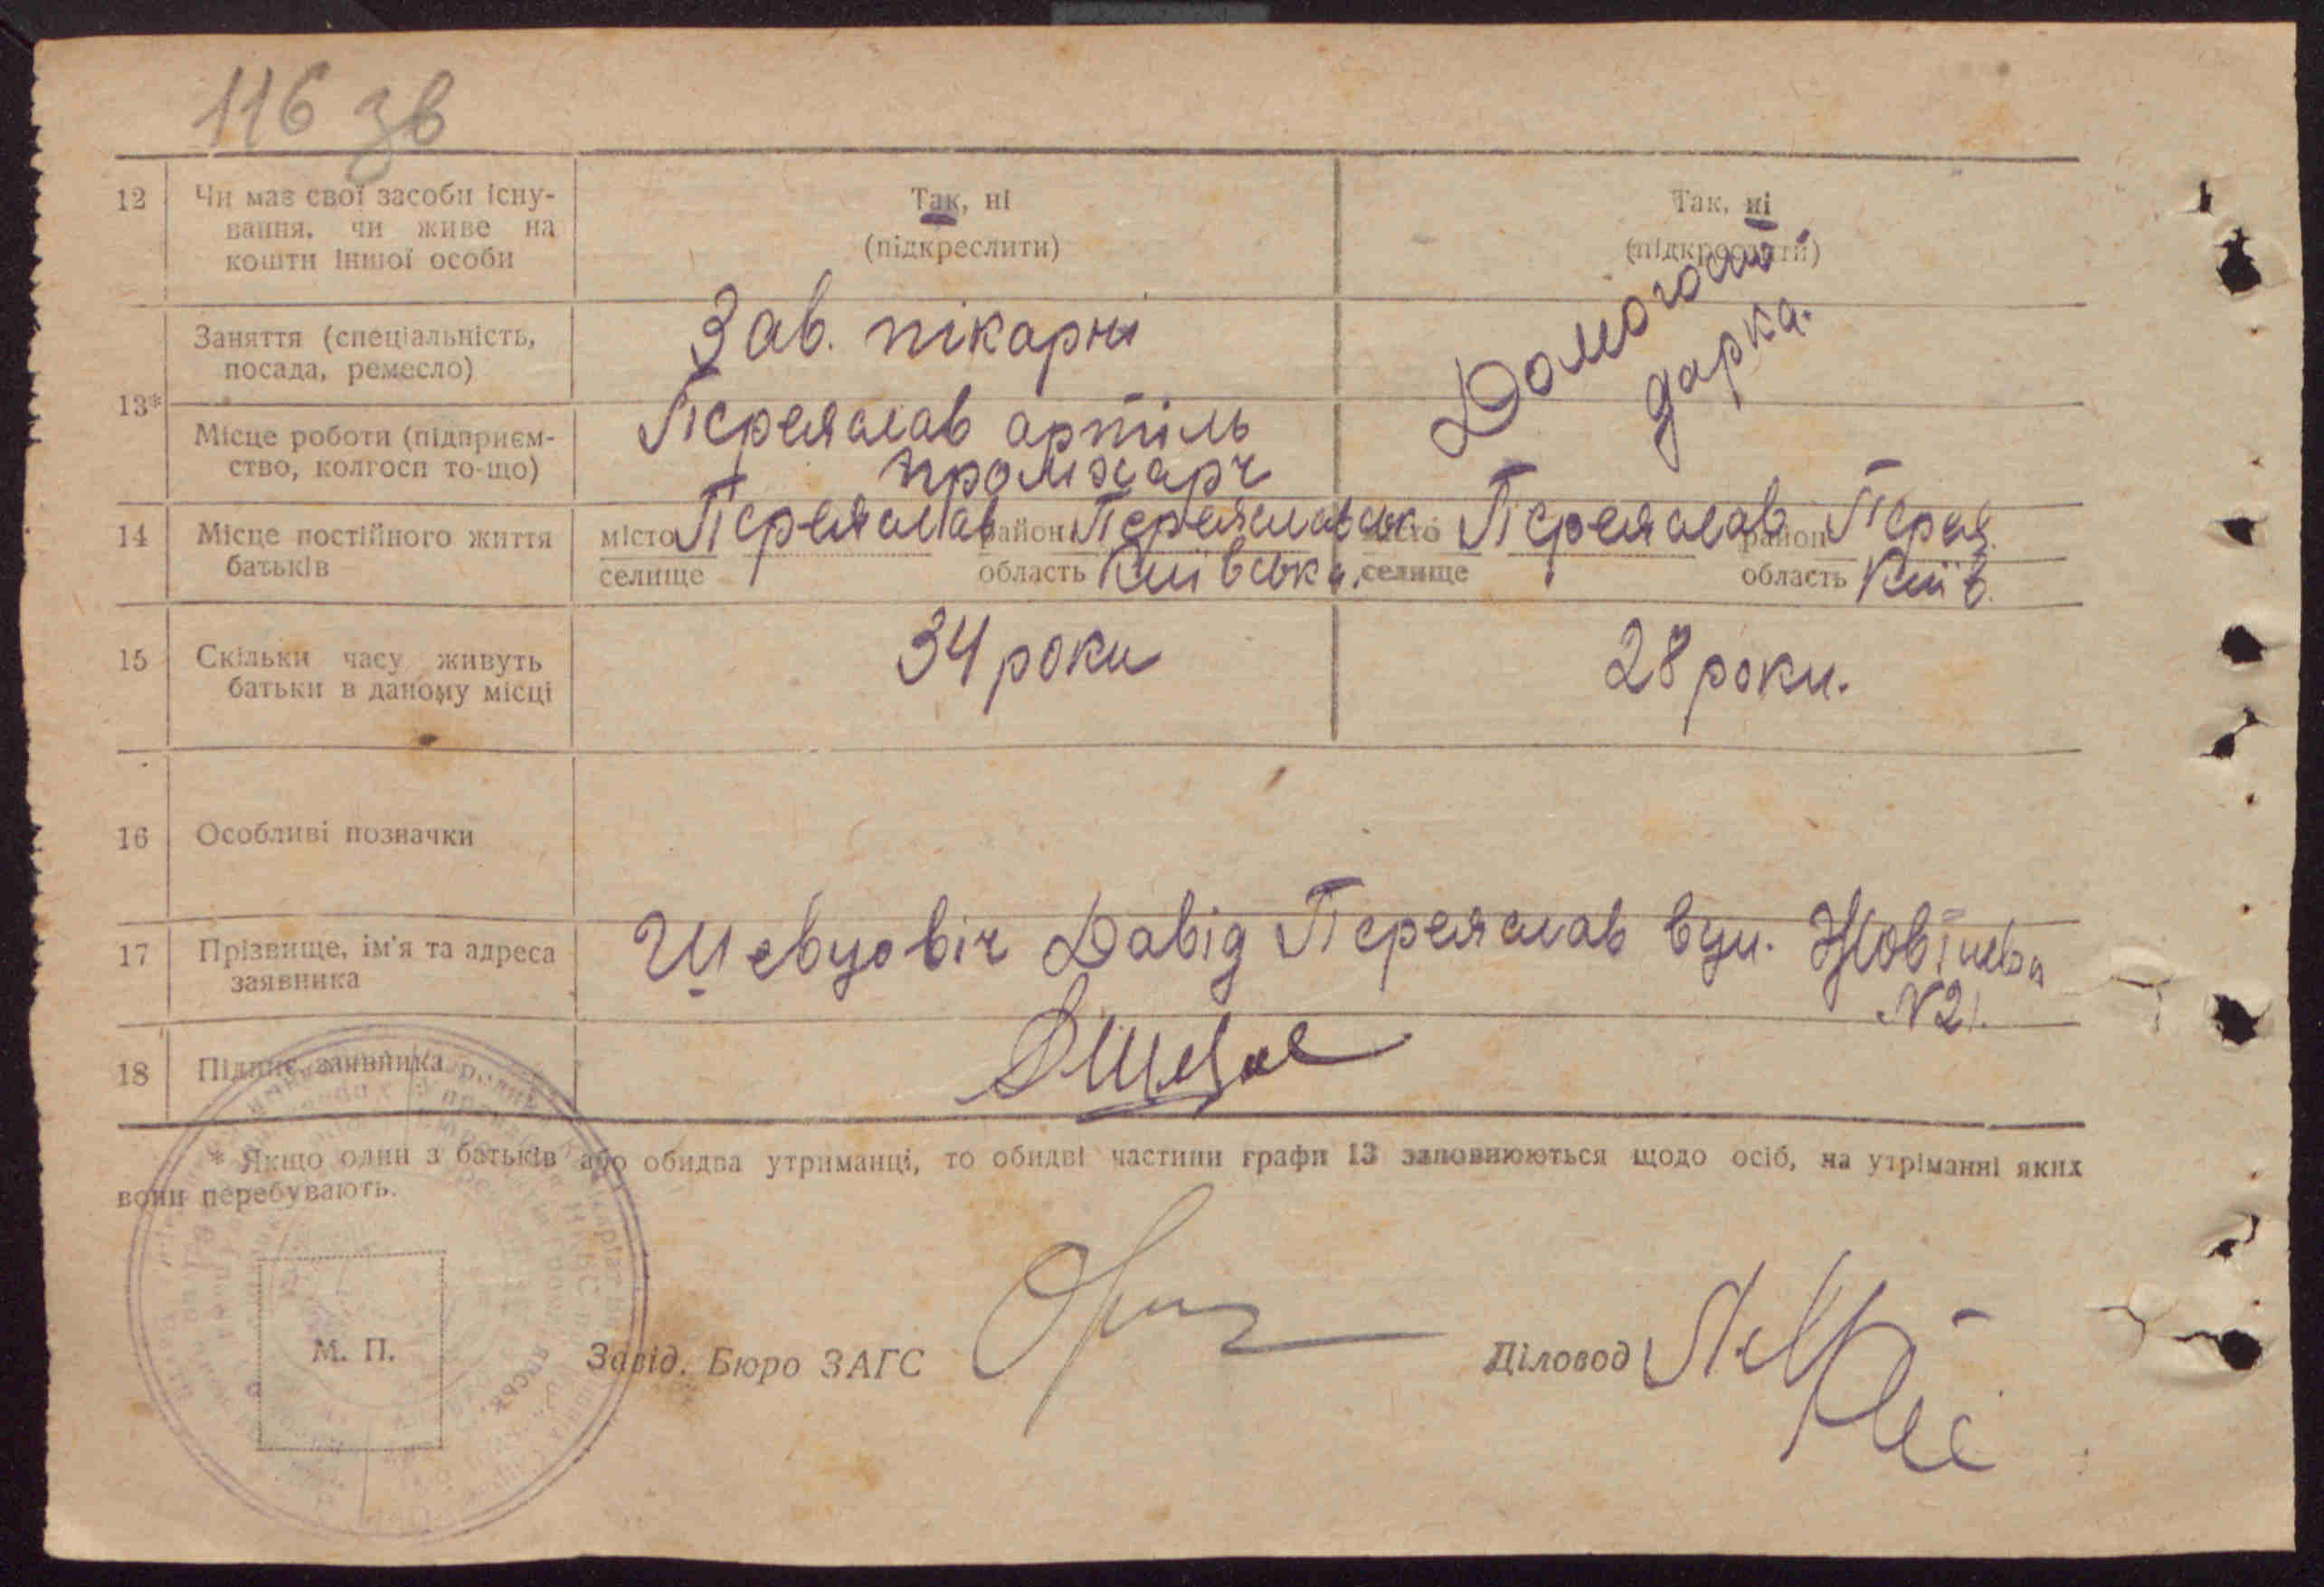 116 зв
12 Чи має свої засоби існу-
вання, чи живе на
кошти іншої особи
Так, ні
(підкреслити)
Так, ні
(підкреслити)
13*
Заняття (спеціальність,
посада, ремесло)
Зав. пікарні
Домогоспо-
дарка.
Місце роботи (підприєм-
ство, колгосп то-що)
Переяслав артіль
промхарч
14 Місце постійного життя
батьків
місто Переяслав район Переяславськ
селище область Київська.
місто Переяслав район Перея.
селище область Київ.
15 Скільки часу живуть
батьки в даному місці
34 роки
28 роки.
16 Особливі позначки
17 Прізвище, ім'я та адреса
заявника
Шевцовіч Давід Переяслав вул.
N21.
18 Підпис заявника
* Якщо один з батьків або обидва утриманці, то обидві частини графи 13 заповнюються щодо осіб, на утріманні яких
вони перебувають.
М. П.
Завід. Бюро ЗАГС
Діловод